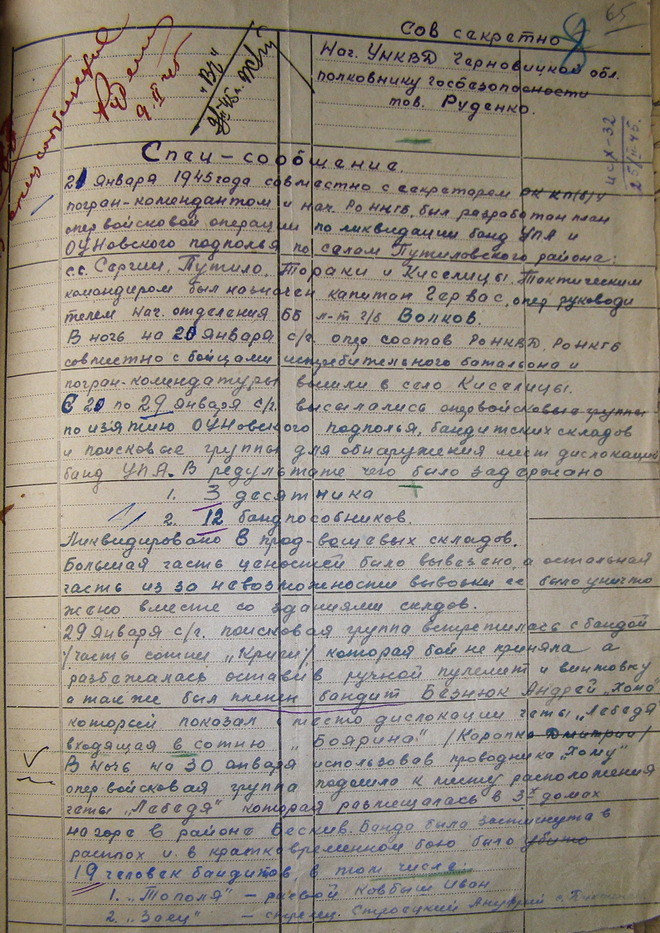 65
Сов секретно
Нач. УНКВД Черновицкой обл.
полковнику госбезопасности
тов. Руденко.
исх-32
Спец-сообщение.
21 Января 1945 года совместно с секретарем РК КП(б)У
погран-комендантом и нач. РОНКГБ, был разработан план
опер войсковой операции по ликвидации банд УПА и
ОУНовского подполья по селам Путиловского района:
с.с. Сергии, Путило, Тораки и Киселицы. Тактическим
командиром был назначен капитан Гервас, опер руководи
телем нач. отделения ББ л-т г/б Волков.
В ночь на 20 Января с/г. опер состав РОНКВД, РОНКГБ
совместно с бойцами истребительного батальона и
погран-комендатуры вышли в село Киселицы.
С 20 по 29 Января с/г. высылались опервойсковые группы
по изятию ОУНовского подполья, бандитских складов
и поисковые группы для обнаружения мест дислокации
банд УПА. В результате чего было задержано
1. 3 десятника
2. 12 бандпособников.
Ликвидировано 8 прод-вещевых складов.
Большая часть ценностей было вывезено, а остальная
часть из за невозможности вывозки ее было уничто
жено вместе со зданиями складов.
29 Января с/г. поисковая группа встретилась с бандой
/часть сотни „Криги"/ которая бой не приняла а
разбежалась оставив ручной пулемет и винтовку
а так же был пленен бандит Безнюк Андрей „Хома"
который показал место дислокации четы „Лебедя"
входящая в сотню „Боярина" /Карапко Дмитрий/
В ночь на 30 января использовав проводника „Хому"
опервойсковая группа подошла к месту расположения
четы „Лебедя" которая размещалась в 3х домах
на горе в районе Бескив. Банда была застигнута в
расплох и в кратковременном бою было убито
19 человек бандитов, в том числе:
1. „Тополя" – роевой Ковбыш Иван
2. „Заец" – стрелец